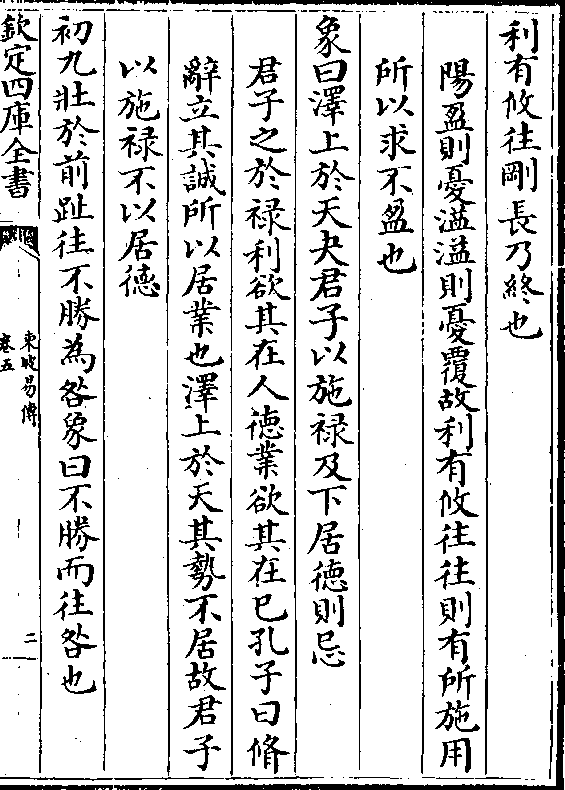 利有攸往剛長乃終也
陽盈則憂溢溢則憂覆故利有攸往往則有所施用
所以求不盈也
象曰澤上於天夬君子以施禄及下居徳則忌
君子之於禄利欲其在人徳業欲其在已孔子曰脩
辭立其誠所以居業也澤上於天其勢不居故君子
以施禄不以居徳
初九壯於前趾往不勝為咎象曰不勝而往咎也
欽定四庫全書
東坡易傳
卷五
二